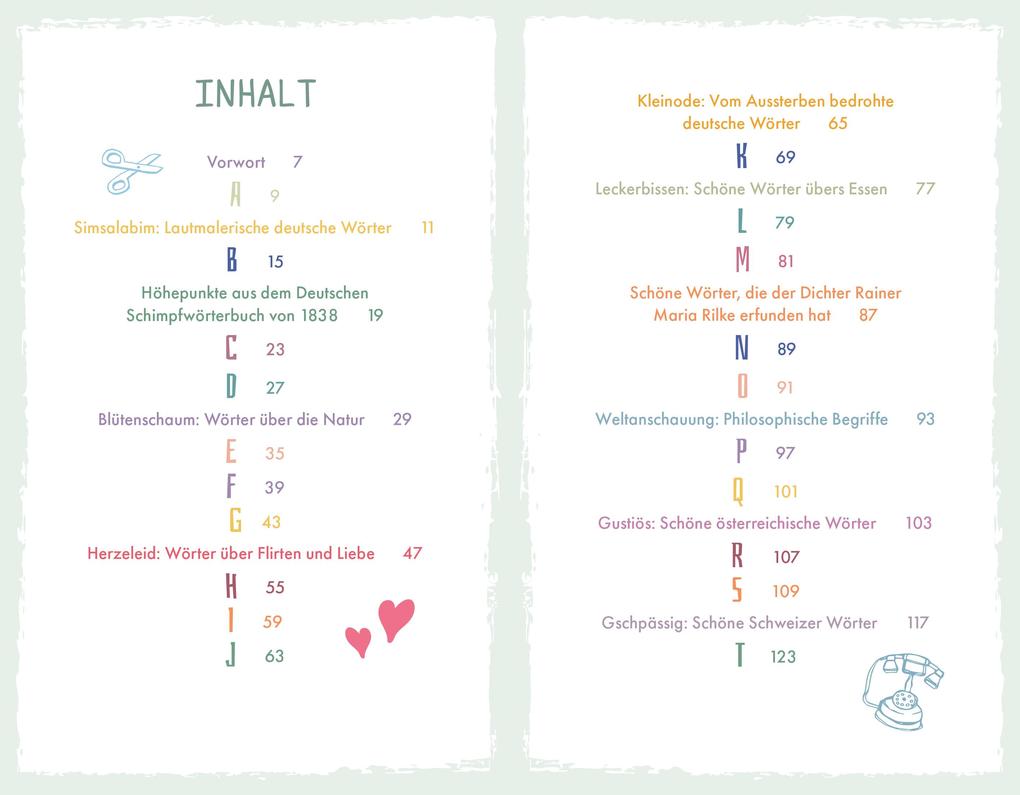 INHALT
Vorwort 7
A 9
Simsalabim: Lautmalerische deutsche Wörter 11
B 15
Höhepunkte aus dem Deutschen
Schimpfwörterbuch von 1838 19
C 23
D 27
Blütenschaum: Wörter über die Natur 29
E 35
F 39
G 43
Herzeleid: Wörter über Flirten und Liebe 47
H 55
I 59
J 63
Kleinode: Vom Aussterben bedrohte
deutsche Wörter 65
K 69
Leckerbissen: Schöne Wörter übers Essen 77
L 79
M 81
Schöne Wörter, die der Dichter Rainer
Maria Rilke erfunden hat 87
N 89
O 91
Weltanschauung: Philosophische Begriffe 93
P 97
Q 101
Gustiös: Schöne österreichische Wörter 103
R 107
S 109
Gschpässig: Schöne Schweizer Wörter 117
T 123